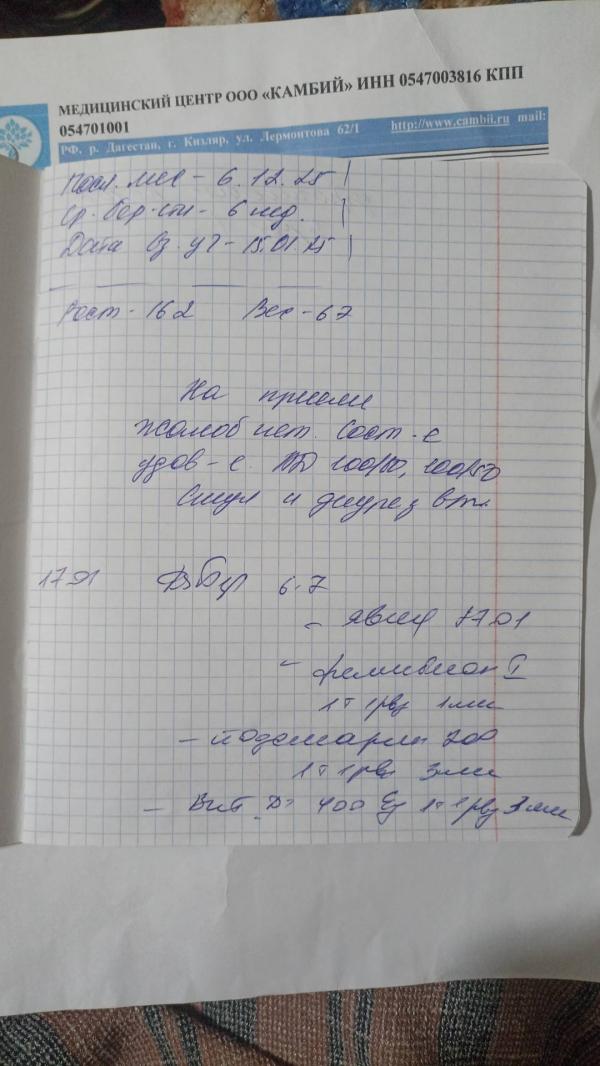 МЕДИЦИНСКИЙ ЦЕНТР ООО «КАМБИЙ» ИНН 0547003816 КПП
054701001
РФ, р. Дагестан, г. Кизляр, ул. Лермонтова 62/1 http://www.cambii.ru mail:
Посл. мес - 6.12.25
Ср. бер-сти - 6 нед.
Дата Вз. уч - 15.01.25
Рост - 162 Вес - 67
На приеме
жалоб нет. Сост-е
удов-е. АД 100/60, 100/50
Стул и диурез в н.
17.01 Ds: Бер 6-7
- явка 17.01
- фемибион I
1т 1рвд 1 мес
- йодомарин 200
1т 1рвд 3 мес
- Вит Д3 400 Ед 1т 1рвд 3 мес